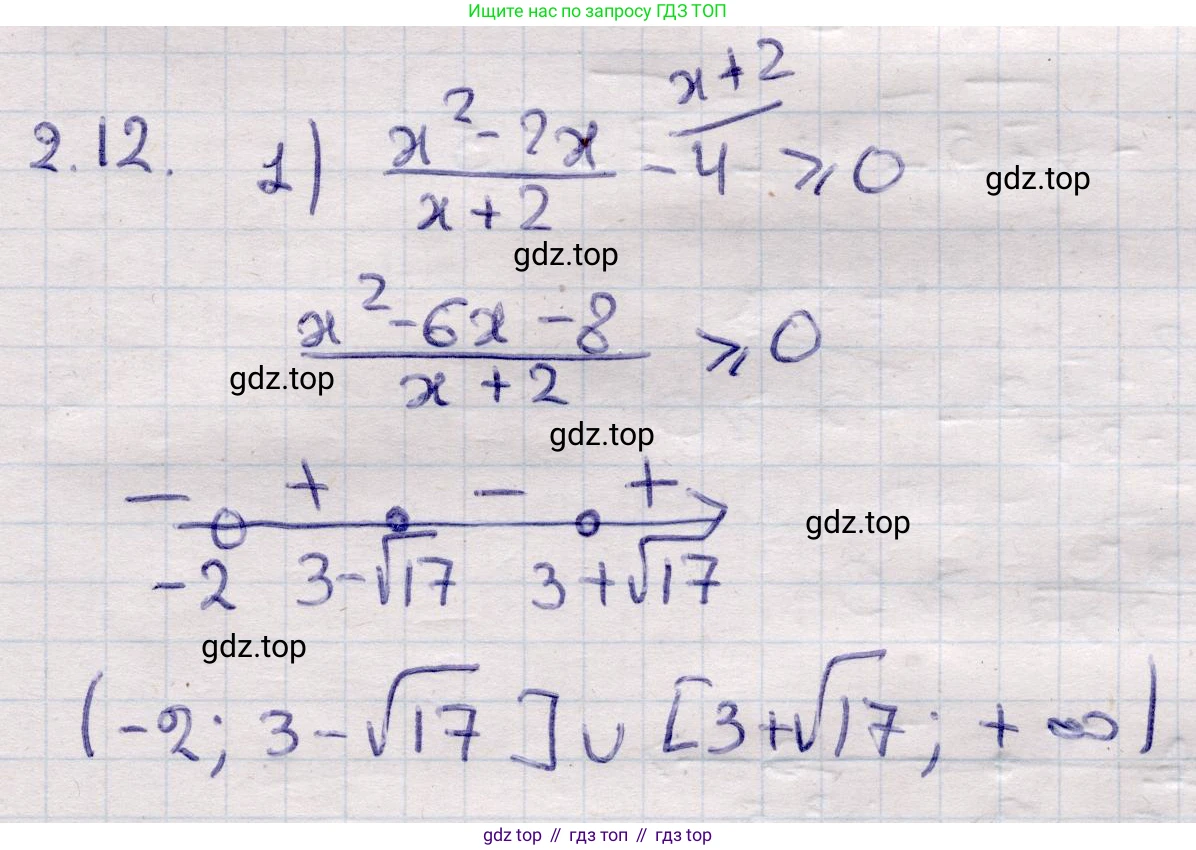 Ищите нас по запросу ГДЗ ТОП
2.12. 1) (x² - 2x)/(x + 2) - 4 /x+2 ⩾ 0 gdz.top
gdz.top
(x² - 6x - 8)/(x + 2) ⩾ 0
gdz.top
gdz.top
− + − +
gdz.top
-2 3-√17 3+√17
gdz.top
(-2; 3-√17] ∪ [3+√17; +∞)
gdz top // гдз топ // gdz top